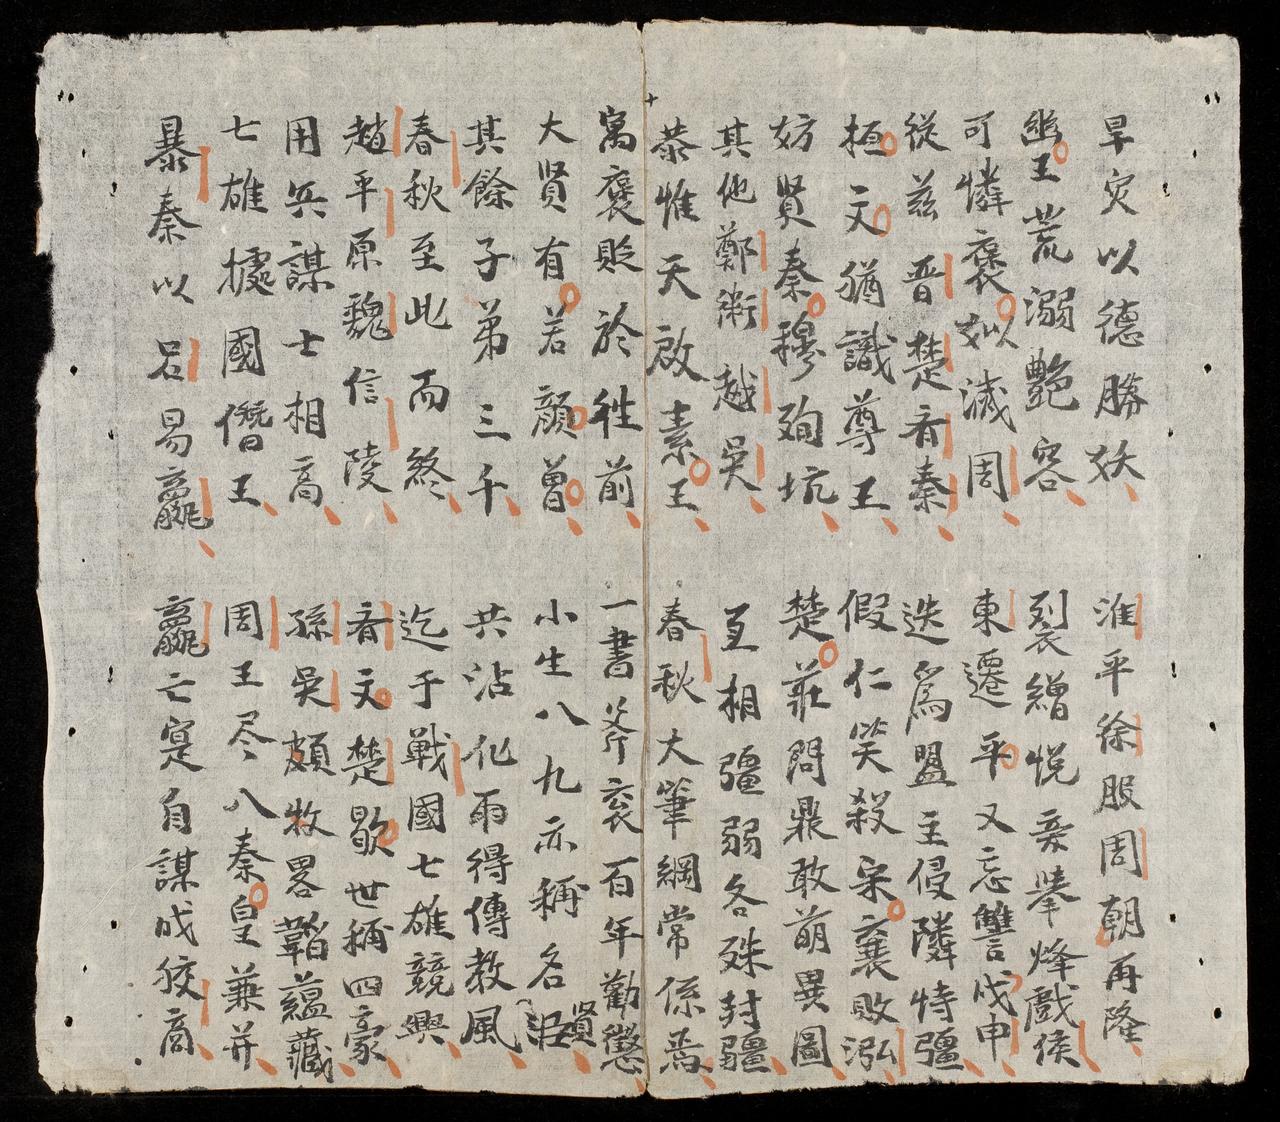 旱灾以德勝妖
淮平徐服周朝再隆
幽王荒溺艷容
裂繒悅旁舉烽戲侯
可憐褒姒滅周
東遷平又忘讐戍申
從兹晋楚看秦
迭為盟主侵隣恃彊
桓文猶識尊王
假仁笑殺宋襄敗泓
妨賢秦穆殉坑
楚莊問鼎敢萌異圖
其他鄭衛越吴
互相彊弱各殊封疆
恭惟天啟素王
春秋大筆綱常係焉
寓褒貶於牲前
一書斧衮百年勸懲
大賢有若顔曾
小生八九亦稱名賢
其餘子弟三千
共沾化雨得傳教風
春秋至此而終
迄于戰國七雄競興
趙平原魏信陵
看文楚歇世稱四豪
用兵謀士相高
孫吴頗牧畧韜蘊藏
七雄據國僭王
周王尽八秦皇兼并
暴秦以呂易嬴
嬴亡寔自謀戍狡商